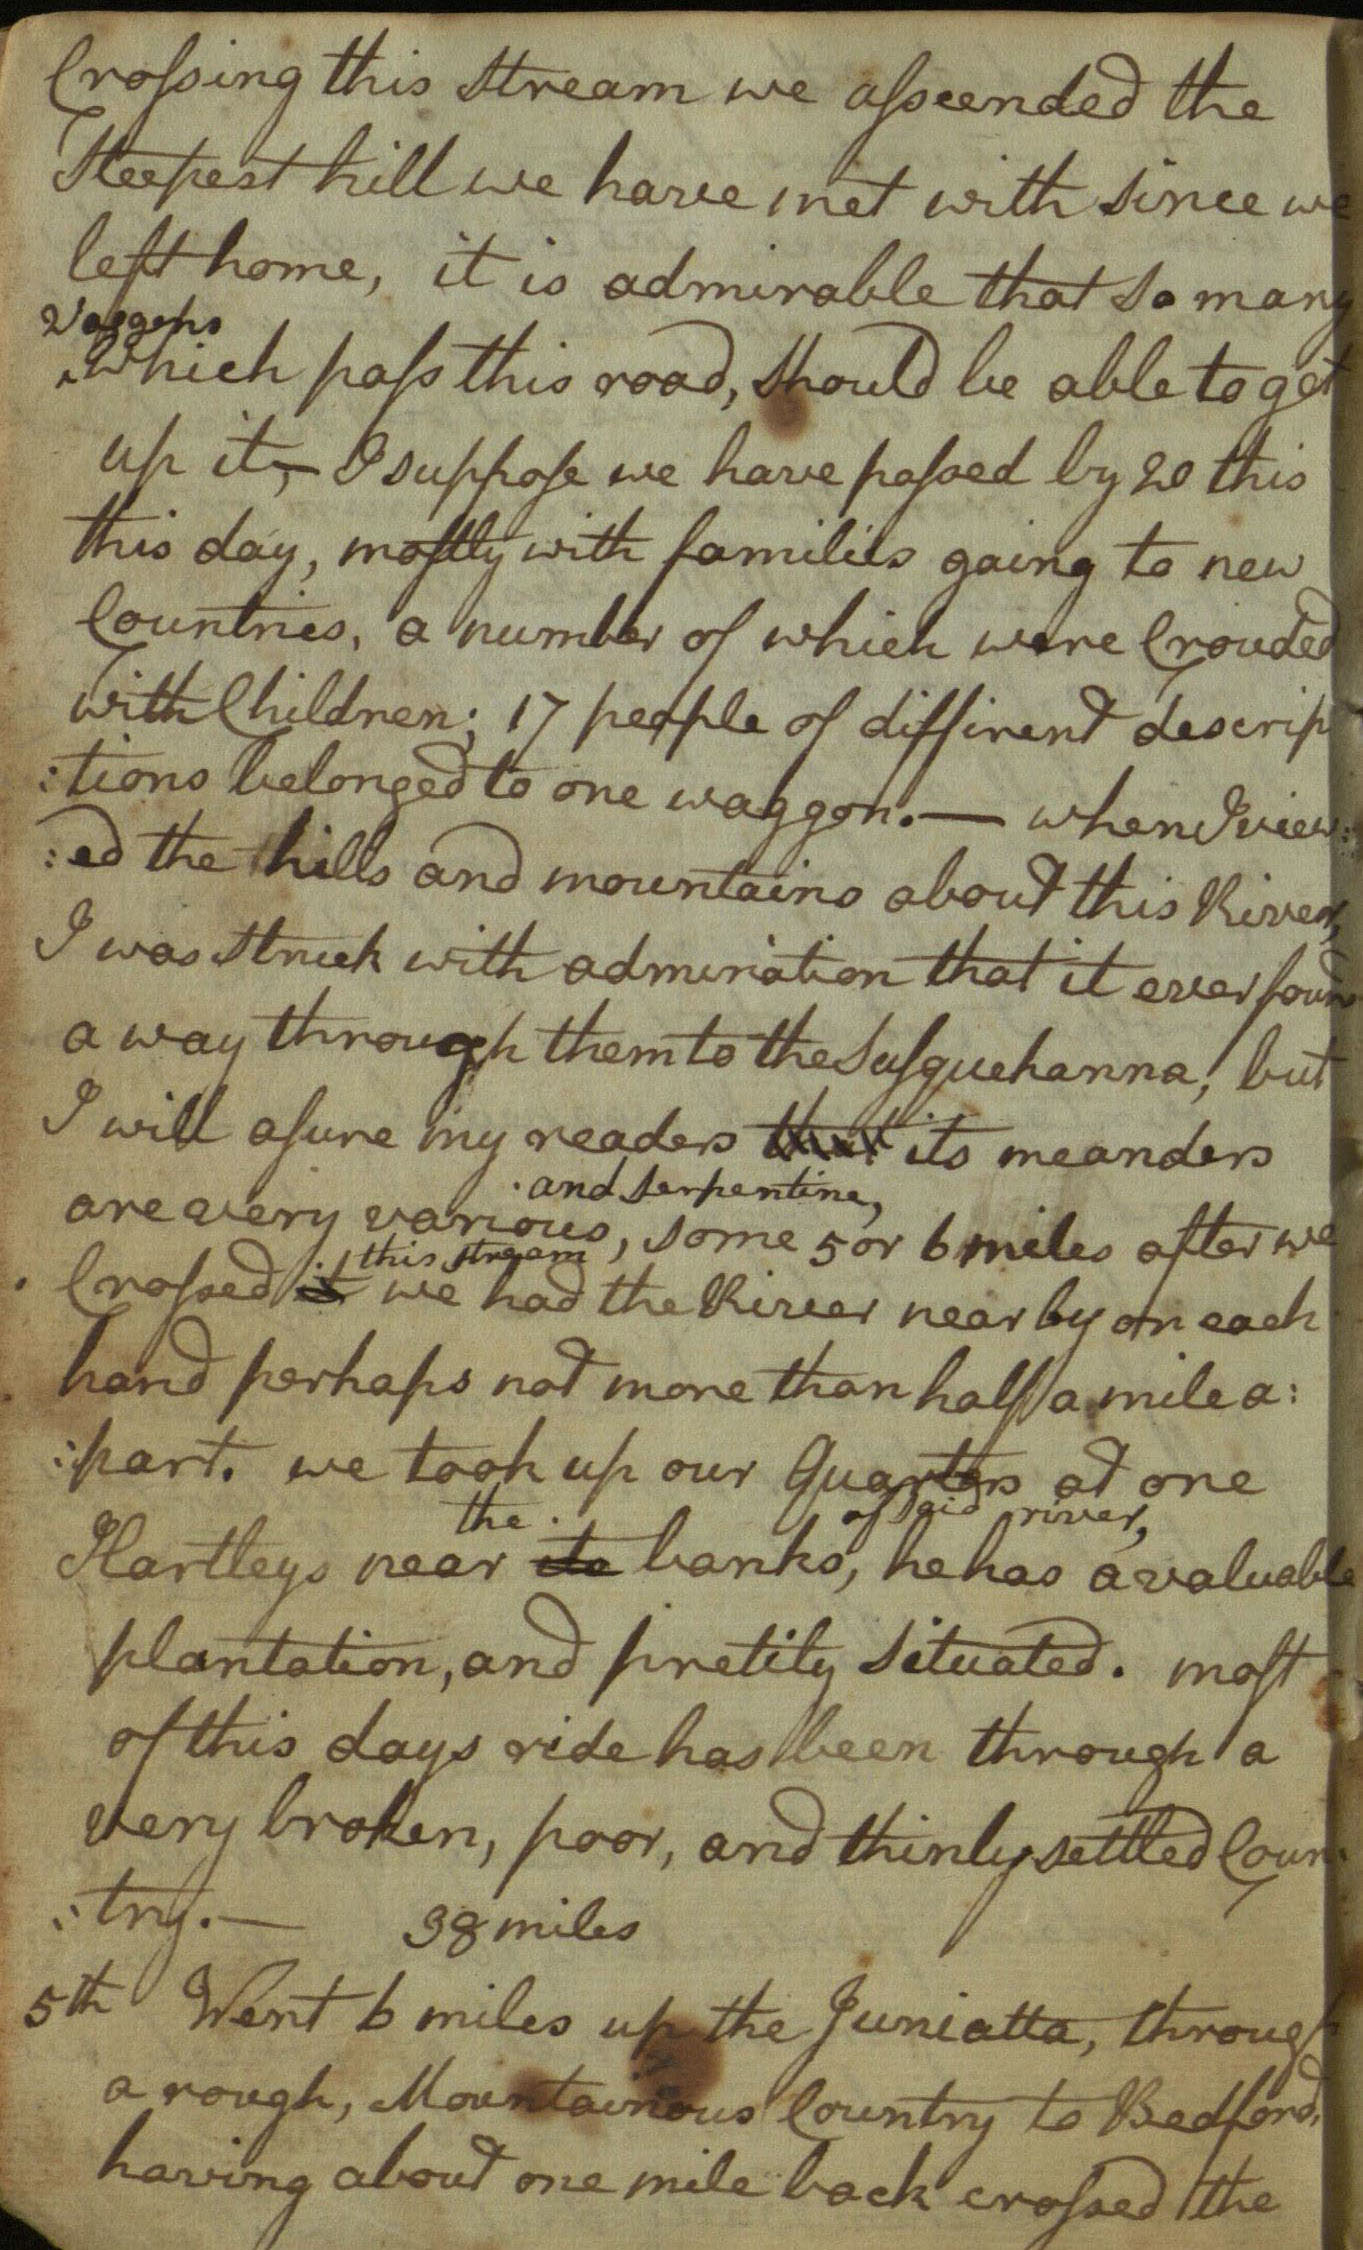 Crossing this Stream we asscended the
Steepest hill we have met with since we
left home, it is admirable that so many
Waggons
which pass this road, should be able to get
up it,— I suppose we have passed by 20 this
this day, mostly with families going to new
Countries, a number of which were Crouded
with Children; 17 people of diffirent descrip
:tions belonged to one waggon.— when I view:
:ed the hills and mountains about this River,
I was struck with admiration that it ever found
a way through them to the Susquehanna, but
I will asure my readers that its meanders
and serpentine,
are avery various, some 5 or 6 miles after we
this stream
Crossed it we had the River near by on each
hand perhaps not more than half a mile a:
:part. we took up our Quarters at one
the of said river,
Hartleys near its banks, he has a valuable
plantation, and pretity situated. most
of this days ride has been through a
very broken, poor, and thinly settled Coun:
:try.— 38 miles
5th Went 6 miles up the Juniatta, through
a rough, Mountainous Country to Bedford,
having about one mile back crossed the